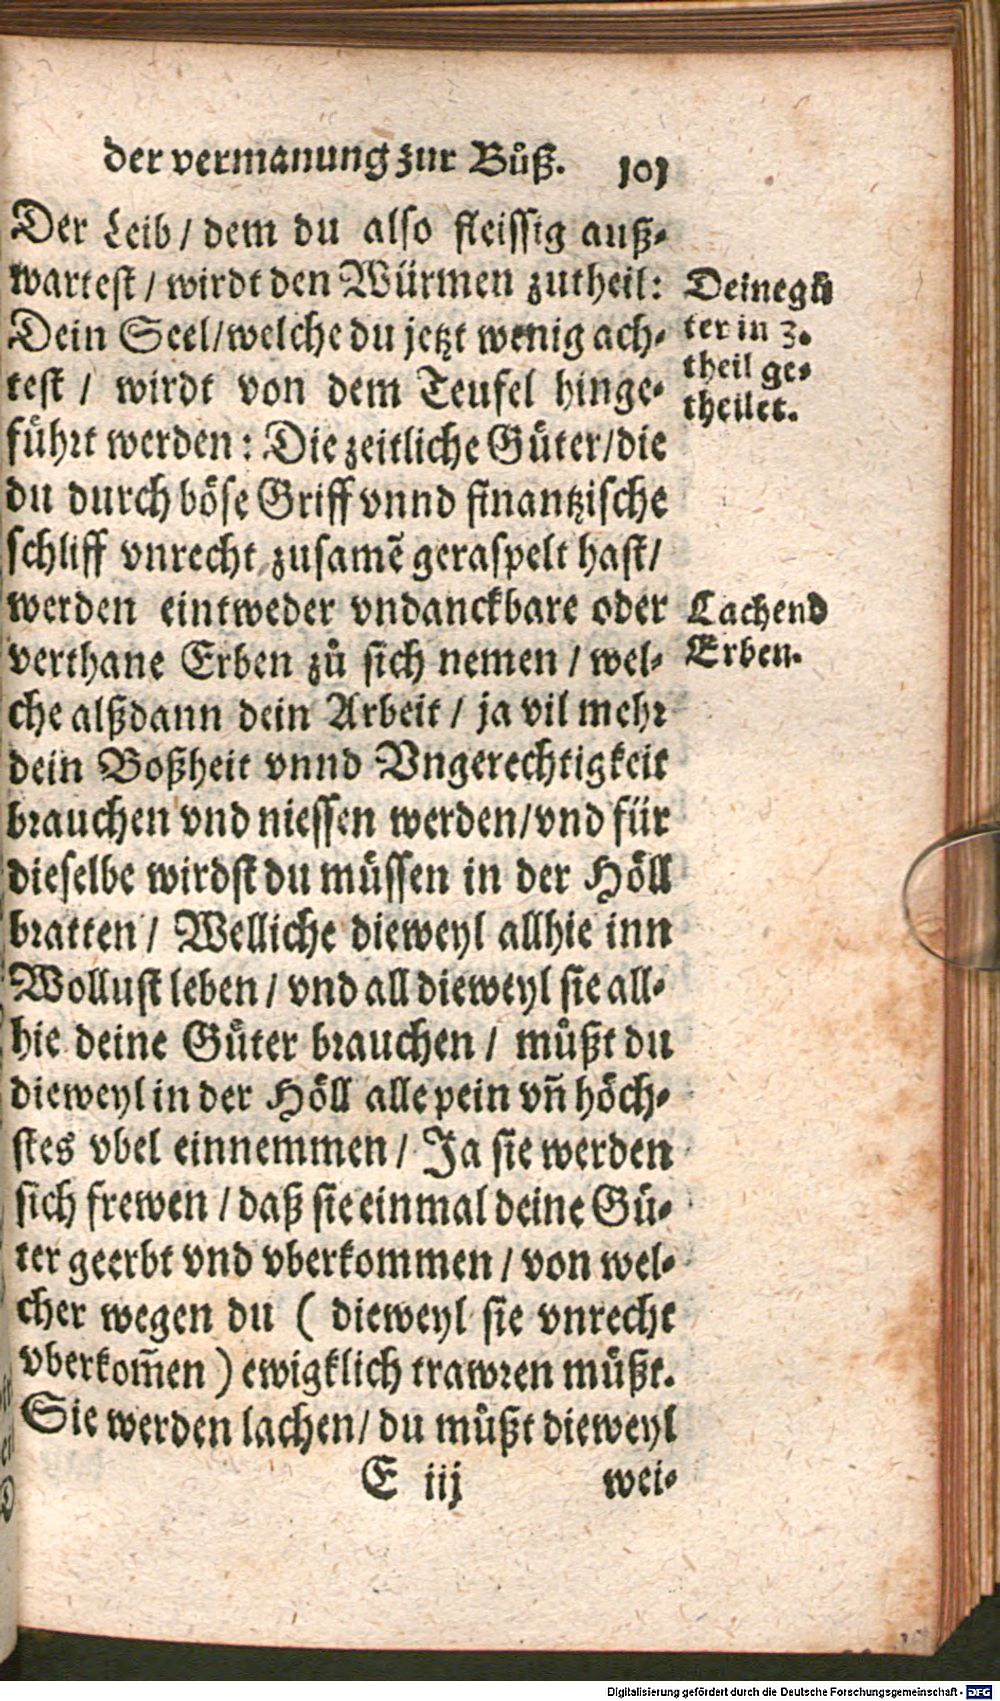 der vermanung zur Bůß. 101
Der Leib / dem du also fleissig auß-
wartest / wirdt den Würmen zutheil:
Dein Seel/welche du jetzt wenig ach-
test / wirdt von dem Teufel hinge-
führt werden: Die zeitliche Güter/die
du durch böse Griff vnnd finantzische
schliff vnrecht zusamẽ geraspelt hast/
werden eintweder vndanckbare oder
verthane Erben zů sich nemen / wel-
che alßdann dein Arbeit / ja vil mehr
dein Boßheit vnnd Vngerechtigkeit
brauchen vnd niessen werden/vnd für
dieselbe wirdst du müssen in der Höll
bratten / Welliche dieweyl allhie inn
Wollust leben / vnd all dieweyl sie all-
hie deine Güter brauchen / můßt du
dieweyl in der Höll alle pein vñ höch-
stes vbel einnemmen / Ja sie werden
sich frewen / daß sie einmal deine Gü-
ter geerbt vnd vberkommen / von wel-
cher wegen du ( dieweyl sie vnrecht
vberkom̃en ) ewigklich trawren můßt.
Sie werden lachen/ du můßt dieweyl
E iij wei-
Deine gü
ter in 3.
theil ge-
theilet.
Lachend
Erben.
Digitalisierung gefördert durch die Deutsche Forschungsgemeinschaft - DFG